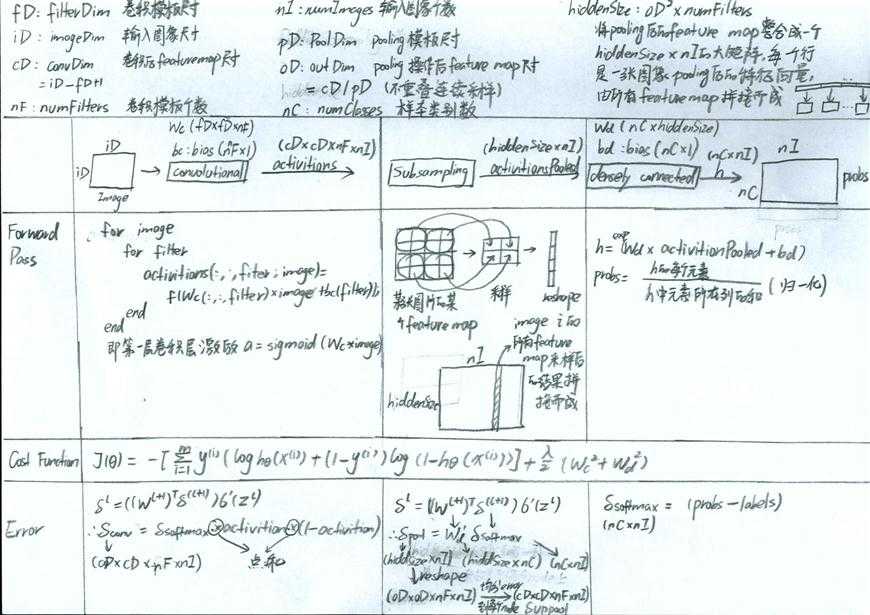 fD: filterDim 卷积模板尺寸
iD: imageDim 输入图象尺寸
cD: convDim 卷积后featuremap尺寸
= iD-fD+1
nF: numFilters 卷积模板个数
nI: numImages 输入图象个数
pD: PoolDim pooling模板尺寸
oD: outDim pooling操作后feature map尺寸
= cD/pD (不重叠连续采样)
nC: numClasses 样本类别数
hiddenSize: oD² × numFilters
将pooling后的feature map整合成一个
hiddenSize × nI的大矩阵,每个行
是一张图象pooling后的特征向量,
由所有feature map拼接而成
iD
iD
Image
Wc (fD×fD×nF)
bc: bias (nF×1)
convolutional
(cD×cD×nF×nI)
activitions
Subsampling
(hiddenSize×nI)
activitionsPooled
Wd (nC×hiddenSize)
bd: bias (nC×1)
densely connected
(nC×nI)
h
nI
nC
probs
Forward
Pass
for image
for filter
activitions(:,:,fiter,image)=
f(Wc(:,:,filter)×image+bc(filter));
end
end
即第一层卷积层激励 a = sigmoid (Wc×image)
某张图片的某
个feature map
采样
reshape
image i的
所有feature
map采样后
的结果拼
接而成
nI
hiddenSize
h = exp(Wd × activitionPooled + bd)
probs = h的每个元素
h中元素所在列的和
(归一化)
Cost Function
J(θ) = -[ Σ i=1 m y⁽ⁱ⁾ (log hθ(x⁽ⁱ⁾) + (1-y⁽ⁱ⁾) log (1-hθ(x⁽ⁱ⁾))] + λ/2 (Wc² + Wd²)
Error
δˡ = ((W⁽ˡ⁺¹⁾)ᵀ δ⁽ˡ⁺¹⁾) 6'(zˡ)
∴ δconv = δsoftmax × activition × (1-activition)
(oD×cD×nF×nI)
点乘
δˡ = ((W⁽ˡ⁺¹⁾)ᵀ δ⁽ˡ⁺¹⁾) 6'(zˡ)
∴ δpool = Wd' δsoftmax
(hiddSize×nI) (hiddSize×nC) (nC×nI)
reshape
(oD×oD×nF×nI)
(cD×cD×nF×nI)
δsoftmax = (probs-labels)
(nC×nI)